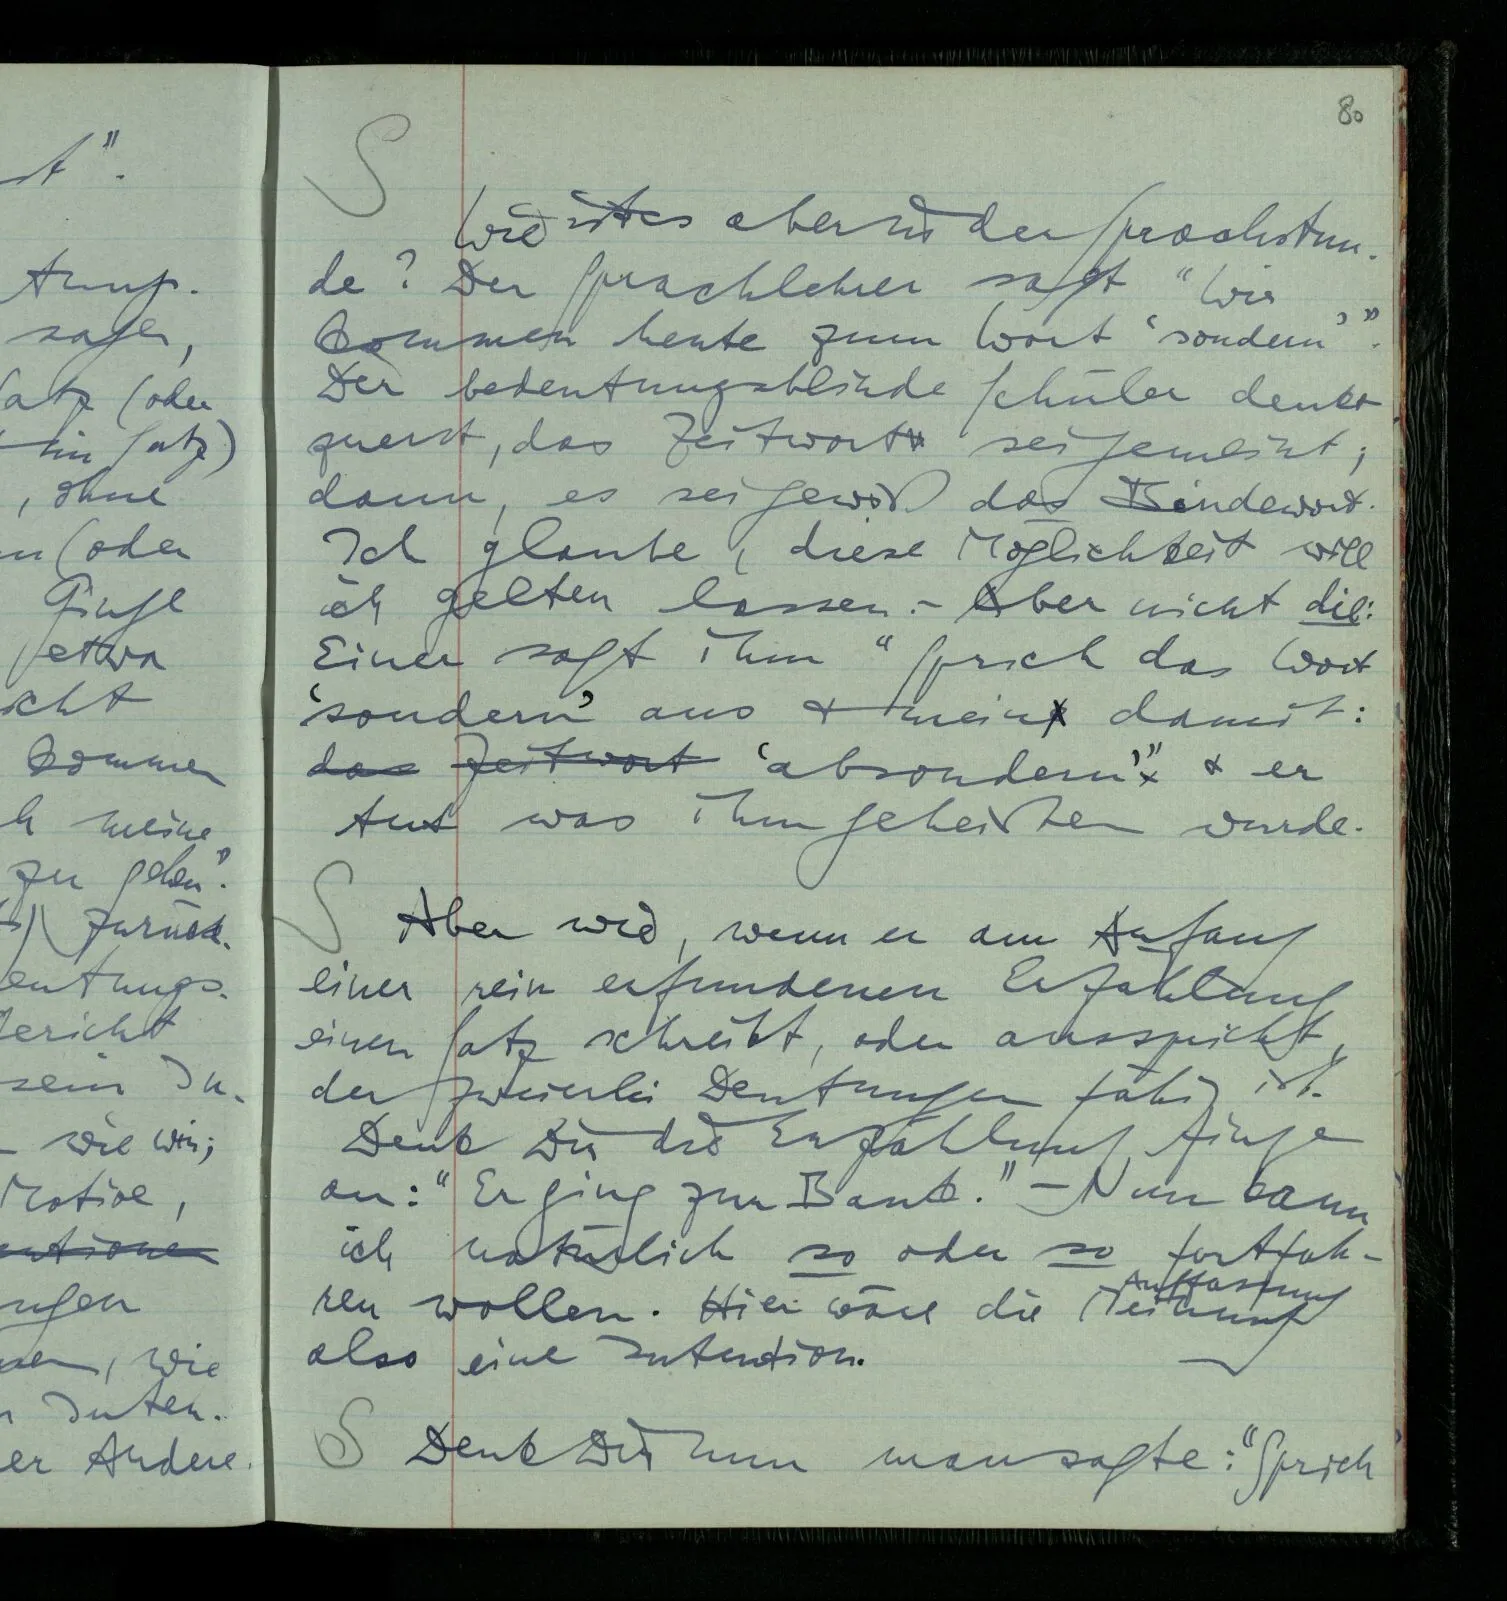 t".
trup.
sagen,
Satz (oder
ein Satz)
, ohne
(oder
Ginge
etwa
nicht
kommen
h meine
zu gehen".
zurück.
eutungs-
Bericht
sein In-
wie wir;
Motive,
entionen
ngen
, wie
Inten-
er Andere
80
S
Wie ist es aber in der Sprachstun-
de? Der Sprachlehrer sagt "Wir
kommen heute zum Wort 'sondern'".
Der bedeutungsblinde Schüler denkt
zuerst, das Zeitwort sei gemeint;
dann, es sei gewiß das Bindewort.
Ich glaube, diese Möglichkeit will
ich gelten lassen. – Aber nicht die:
Einer sagt ihm "Sprich das Wort
'sondern' aus & meine damit:
das Zeitwort 'absondern'" & er
tut was ihm geheißen wurde.
S Aber wie, wenn er am Anfang
einer rein erfundenen Erzählung
einen Satz schreibt, oder ausspricht,
der zweierlei Deutungen fähig ist.
Denk Dir die Erzählung finge
an: "Er ging zur Bank." – Nun kann
ich natürlich so oder so fortfah-
Auffassung
ren wollen. Hier wäre die Meinung
also eine Intention.
S Denk Dir nun man sagte: "Sprich